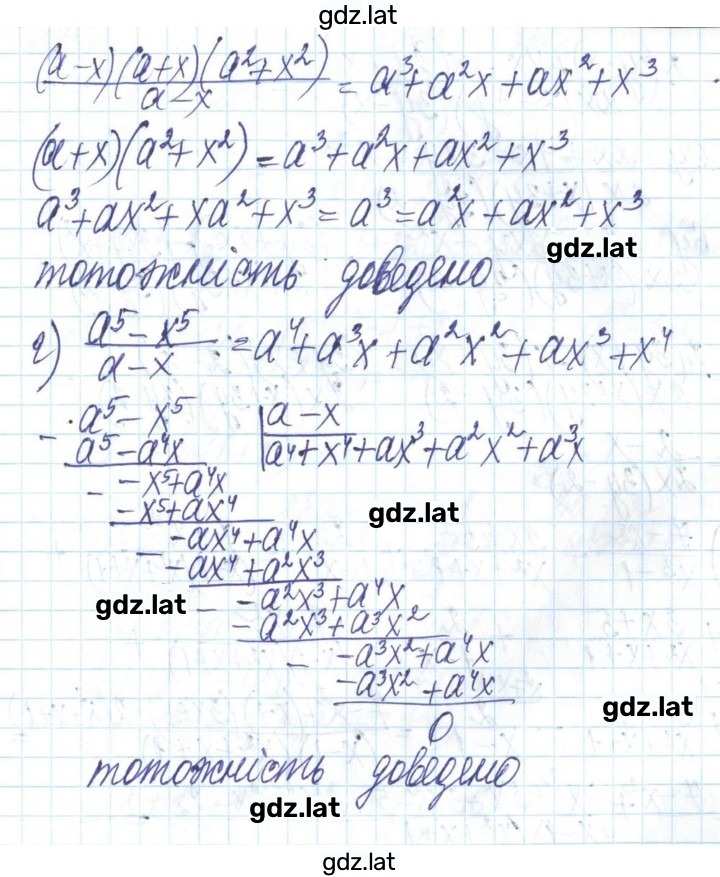 gdz.lat
(a-x)(a+x)(a²+x²)/a-x = a³+a²x+ax²+x³
(a+x)(a²+x²)=a³+a²x+ax²+x³
a³+ax²+xa²+x³=a³=a²x+ax²+x³
gdz.lat
тотожність доведено
г) a⁵-x⁵/a-x =a⁴+a³x+a²x²+ax³+x⁴
- a⁵-x⁵ | a-x
a⁵-a⁴x | a⁴+x⁴+ax³+a²x²+a³x
- -x⁵+a⁴x
-x⁵+ax⁴
gdz.lat
- -ax⁴+a⁴x
-ax⁴+a²x³
gdz.lat
- -a²x³+a⁴x
-a²x³+a³x²
- -a³x²+a⁴x
-a³x²+a⁴x
gdz.lat
0
тотожність доведено
gdz.lat
gdz.lat